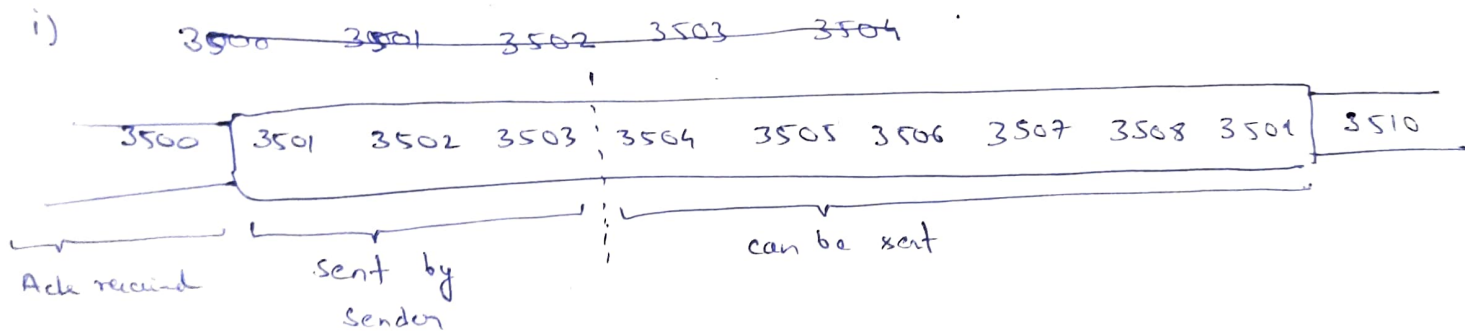 i) 3500 3501 3502 3503 3504
3500 3501 3502 3503 3504 3505 3506 3507 3508 3509 3510
can be sent
Ack received sent by
Sender